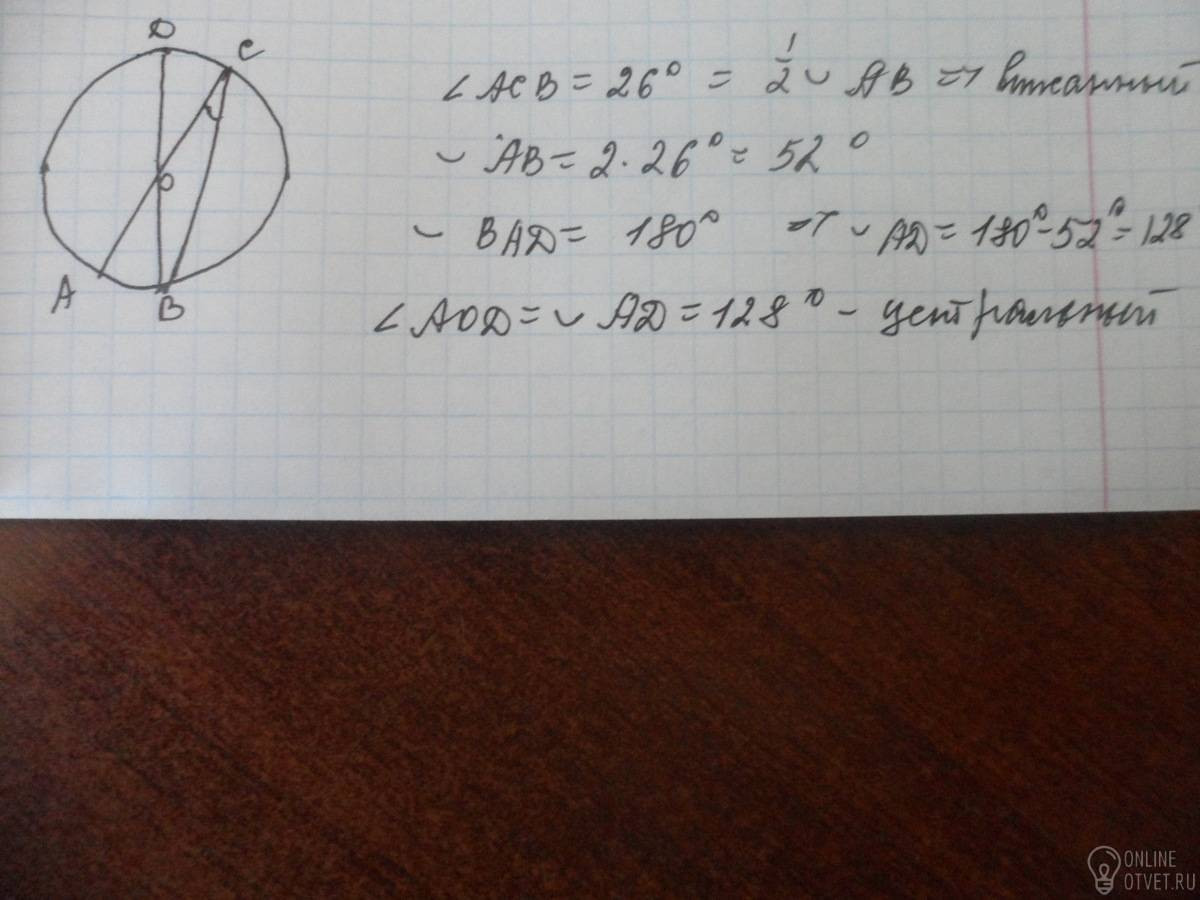 D
C
O
A
B
∠ACB = 26° = 1/2 ◡ AB => вписанный
◡ AB = 2·26° = 52°
◡ BAD = 180° => ◡ AD = 180° - 52° = 128
∠AOD = ◡ AD = 128° - центральный
ONLINE
OTVET.RU